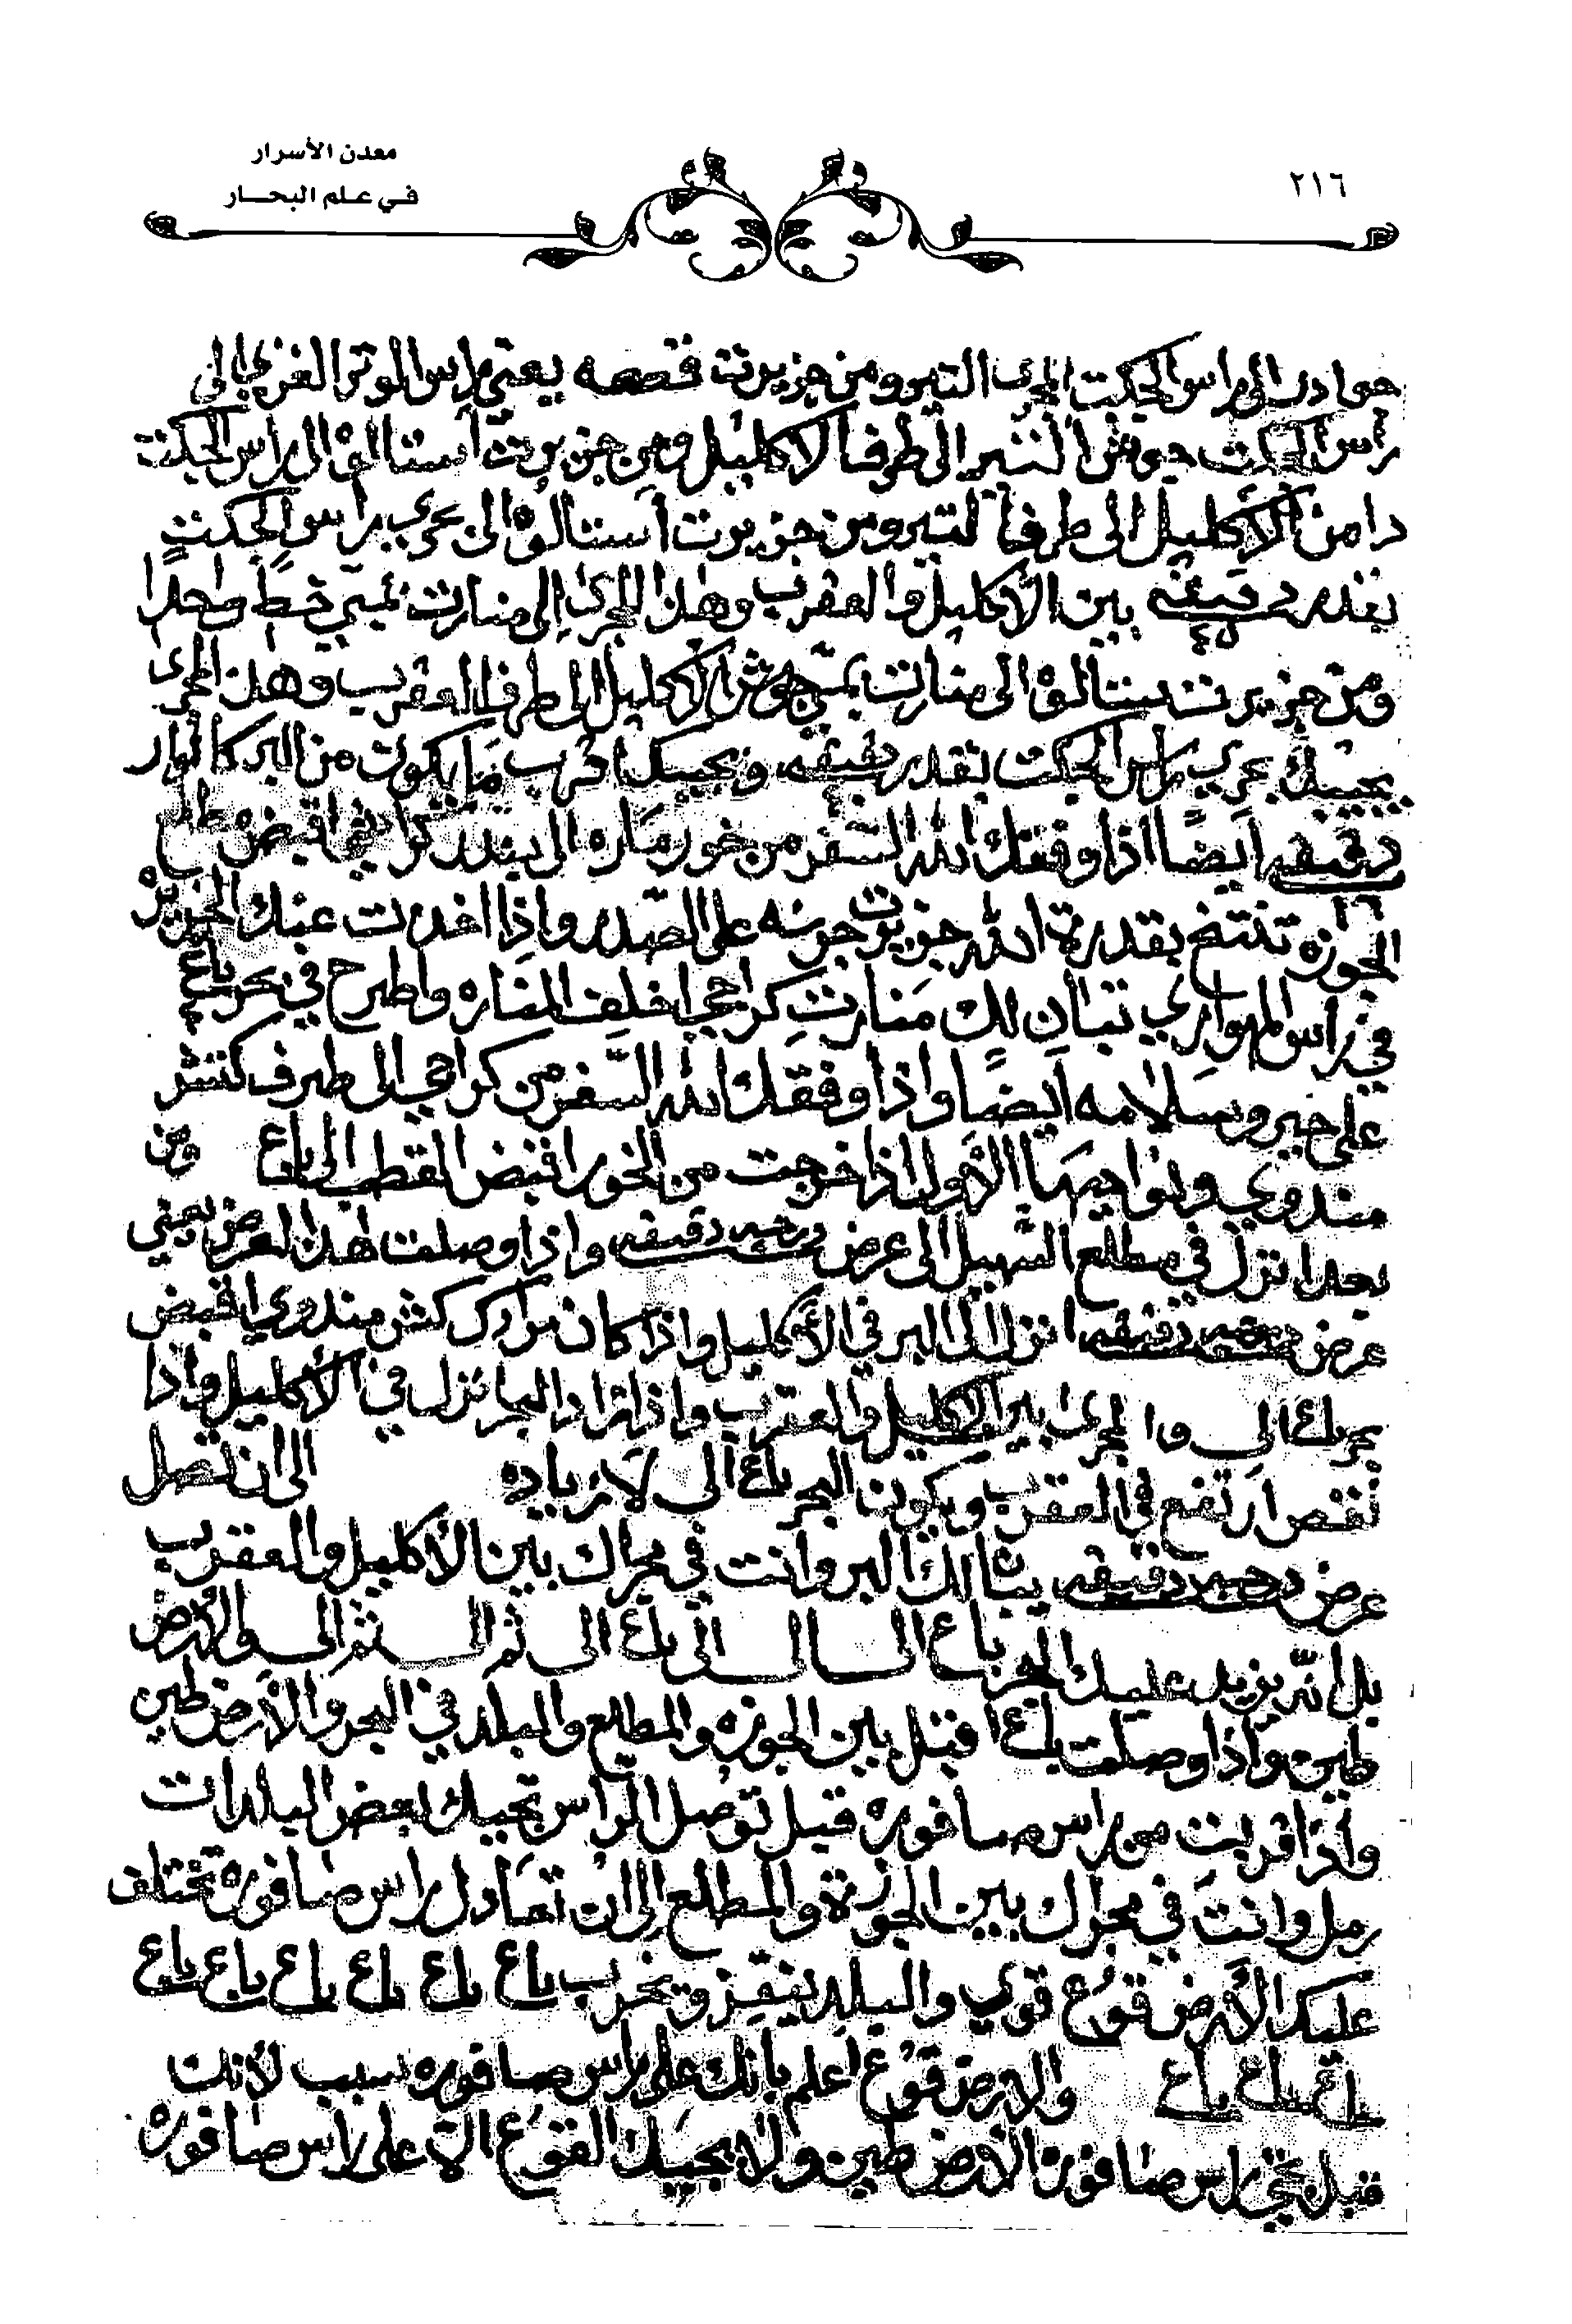 معدن الأسرار
في علم البحار
٢١٦
جوادر الى راس الجكت المجرى التير ومن جزيرت قصعه يعني راس الموتر الغربي الى
راس الجكت جوش التير الى طرف الاكليل ومن جزيرت أستالوه الى راس الجكت
دامن الأكليل الى طرف التير ومن جزيرت أستالوه الى بحري راس الجكت
بقدر دقيقه ٤٥ بين الأكليل والعقرب وهذا المجرى الى منارت خط واحدا
ومن جزيرت ستالوه الى منارت جوش الاكليل الى طرف العقرب وهذا المجرى
يجيبك بحري راس الجكت بقدر دقيقه ويجيبك اقرب ما يكون من البر كاتوار
دقيقه ايضًا اذا وفقك الله السفر من خور ماره الى بندر كراچي اقبض مطلع
الجوزه تنتخ بقدرة الله جزيرت جرنه على الصدر واذا اخذت عنك الجزيره
في راس المهواري تبان لك منارت كراچي اخلف المناره واطرح في بحر باع
على خير وسلامه ايضًا واذا وفقك الله السفر من كراچي الى طرف كنتش
مندوي ونواحيها الأول اذا خرجت من الخور اقبض القطب الى باع ومن
بعد انزل في مطلع السهيل الى عرض درجه دقيقه واذا وصلت هذا العرض يعني
عرض درجه دقيقه انزل الى البر في الأكليل واذا كان مرادك كنتش مندوي اقبض
بحر باع الى والمجرى بين الاكليل والعقرب واذا زاد البحر انزل في الأكليل واذا
نقص ارتفع في العقرب ويكون البحر باع الى لا زياده الى ان تصل
عرض درجه دقيقه يبان لك البر وانت في مجراك بين الأكليل والعقرب
بل انه يزيد عليك البحر باع الى الى الى باع الى ثم الى ثم الى والارض
طين واذا وصلت باع اقتل بين الجوزه والمطلع والبلد في البحر والأرض طين
واذا قربت من راس صافوره قبل توصل الراس تجيبك بعض البلدات
رمل وانت في مجراك بين الجوزة والمطلع الى ان تعادل راس صافوره تختلف
عليك الأرض قوع قوي والبلد ينقز وتخرب باع باع باع باع باع باع
باع باع باع والارض قوع اعلم بانك على راس صافوره سبب لأنك
قبل تجي راس صافوره الأرض طين ولا يجيبك القوع الا على راس صافوره